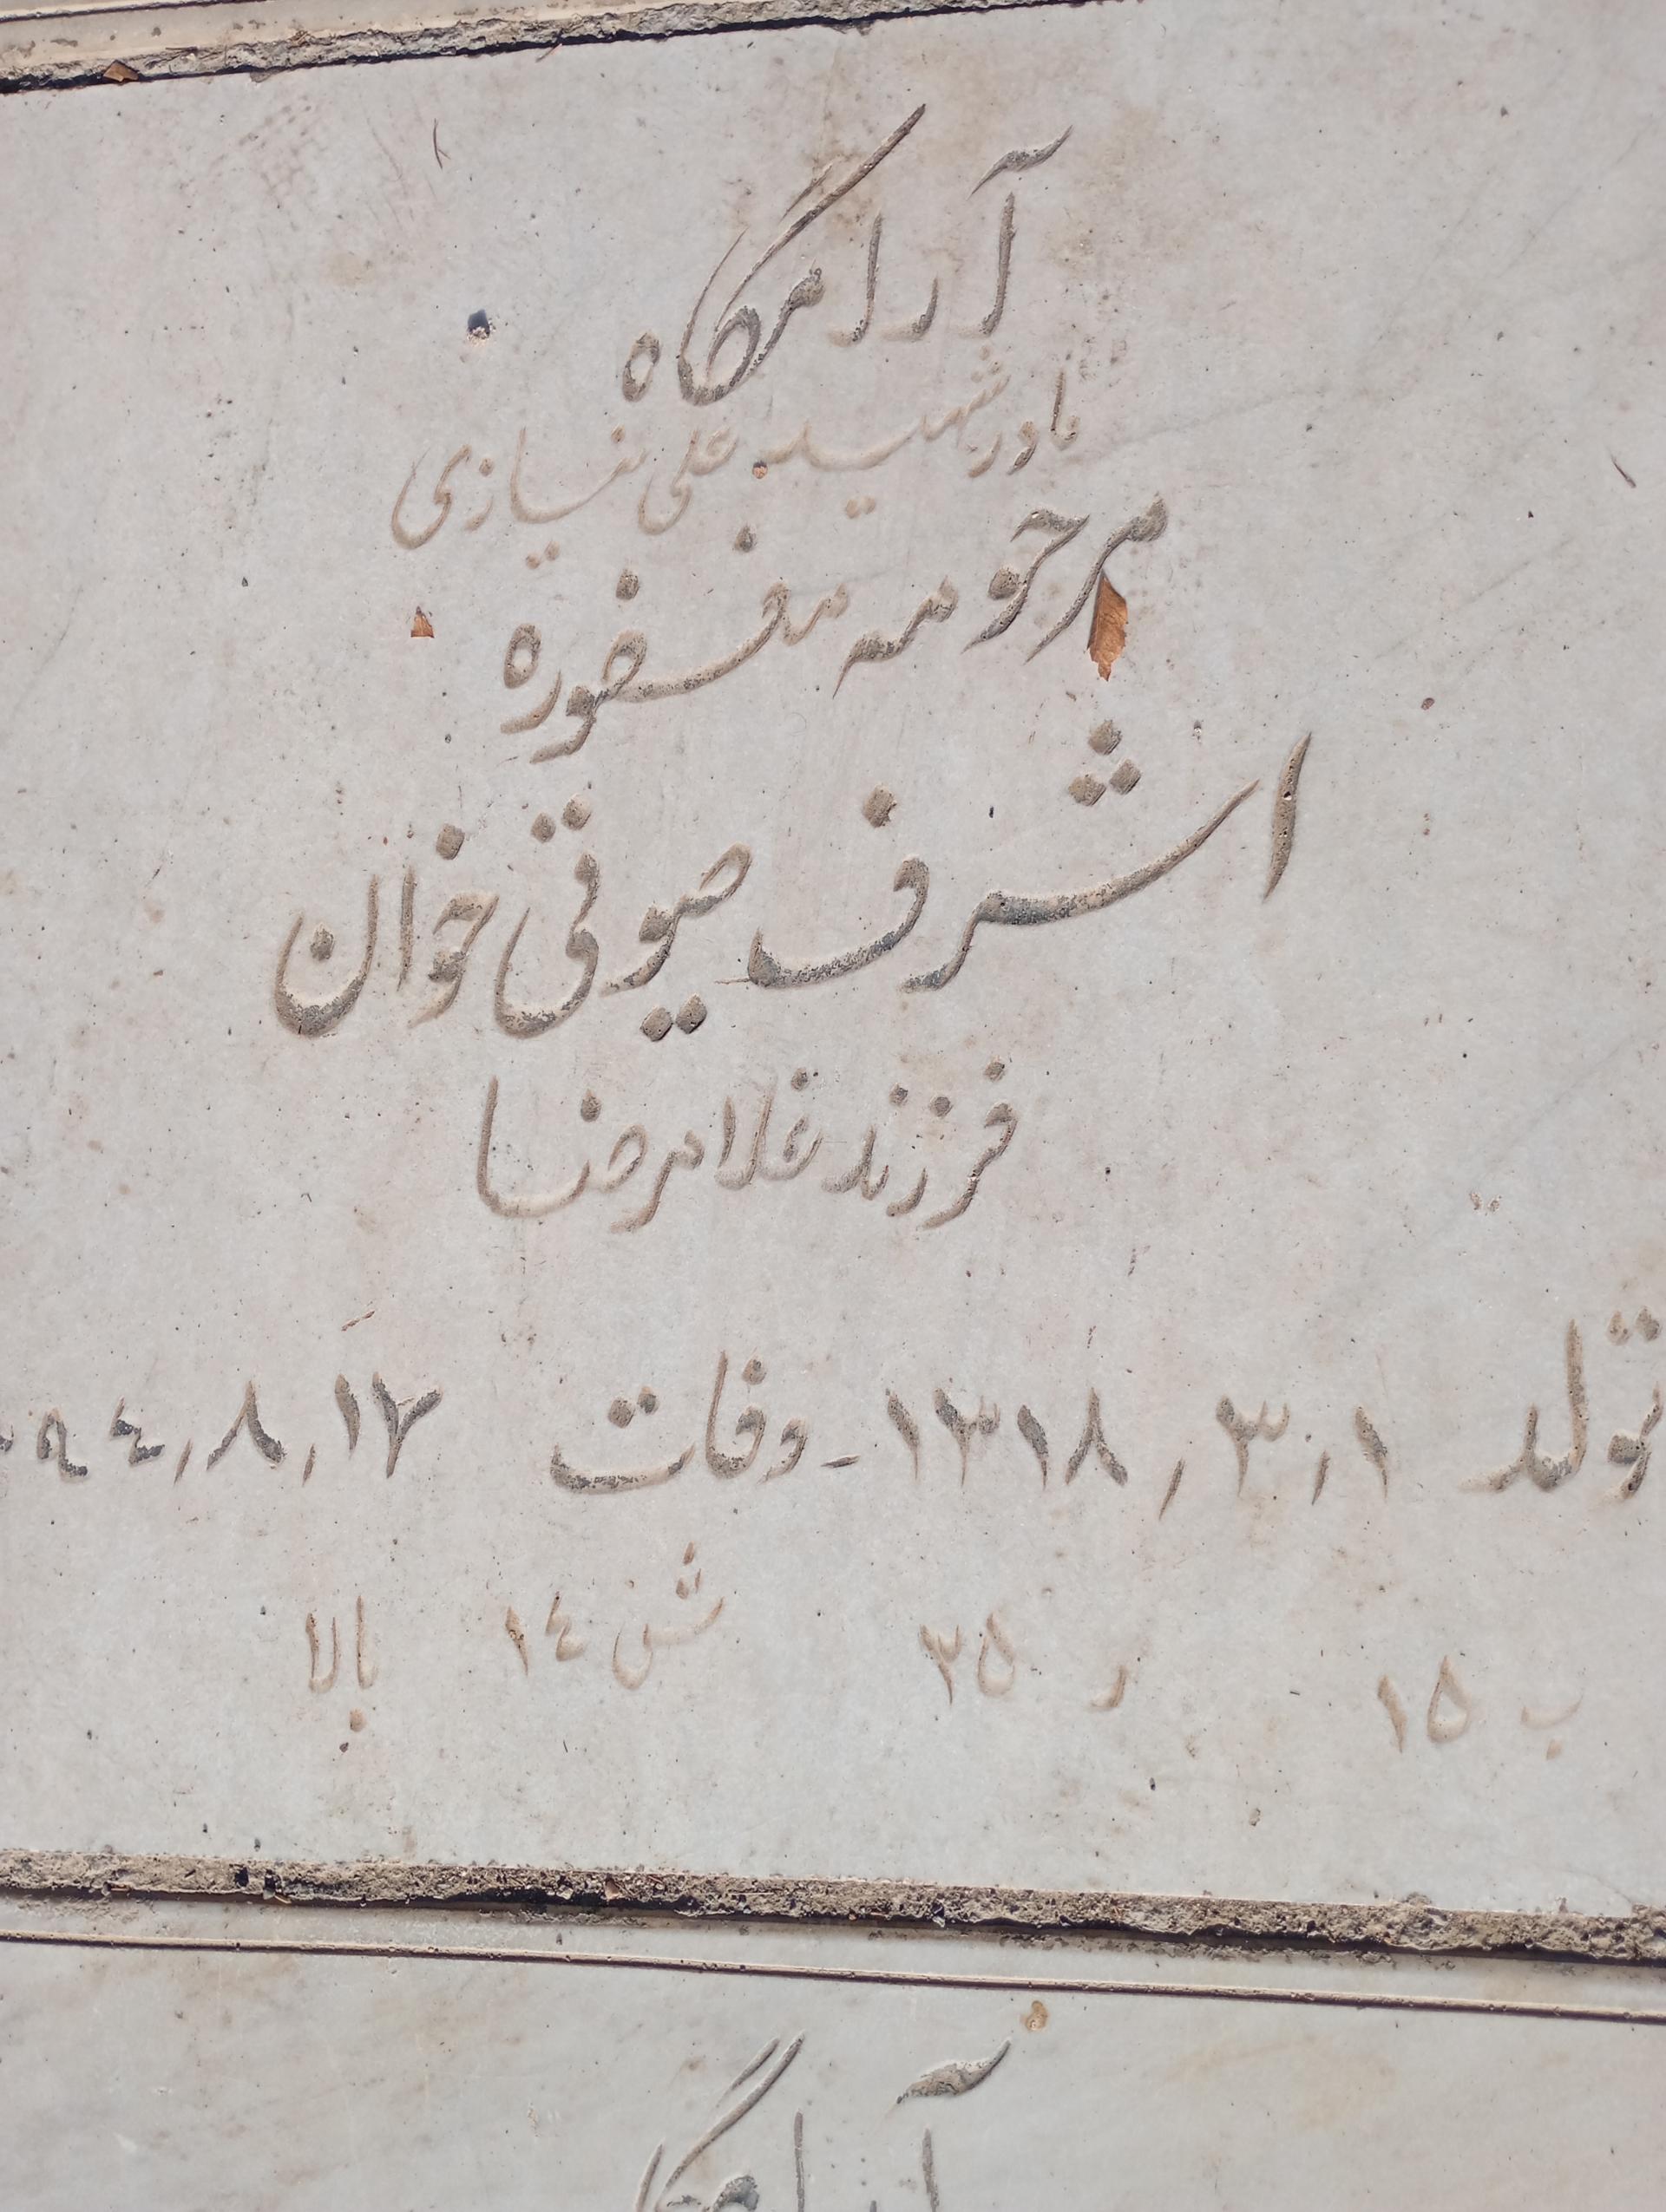 آرامگاه
مادر شهید علی نیازی
مرحومه مغفوره
اشرف صیوقی خوان
فرزند غلامرضا
تولد ۱٫۳٫۱۳۱۸ - وفات ۱۷٫۸٫۹۴
ب ۱۵ ر ۳۵ ش ۱۴ بالا
آرامگاه